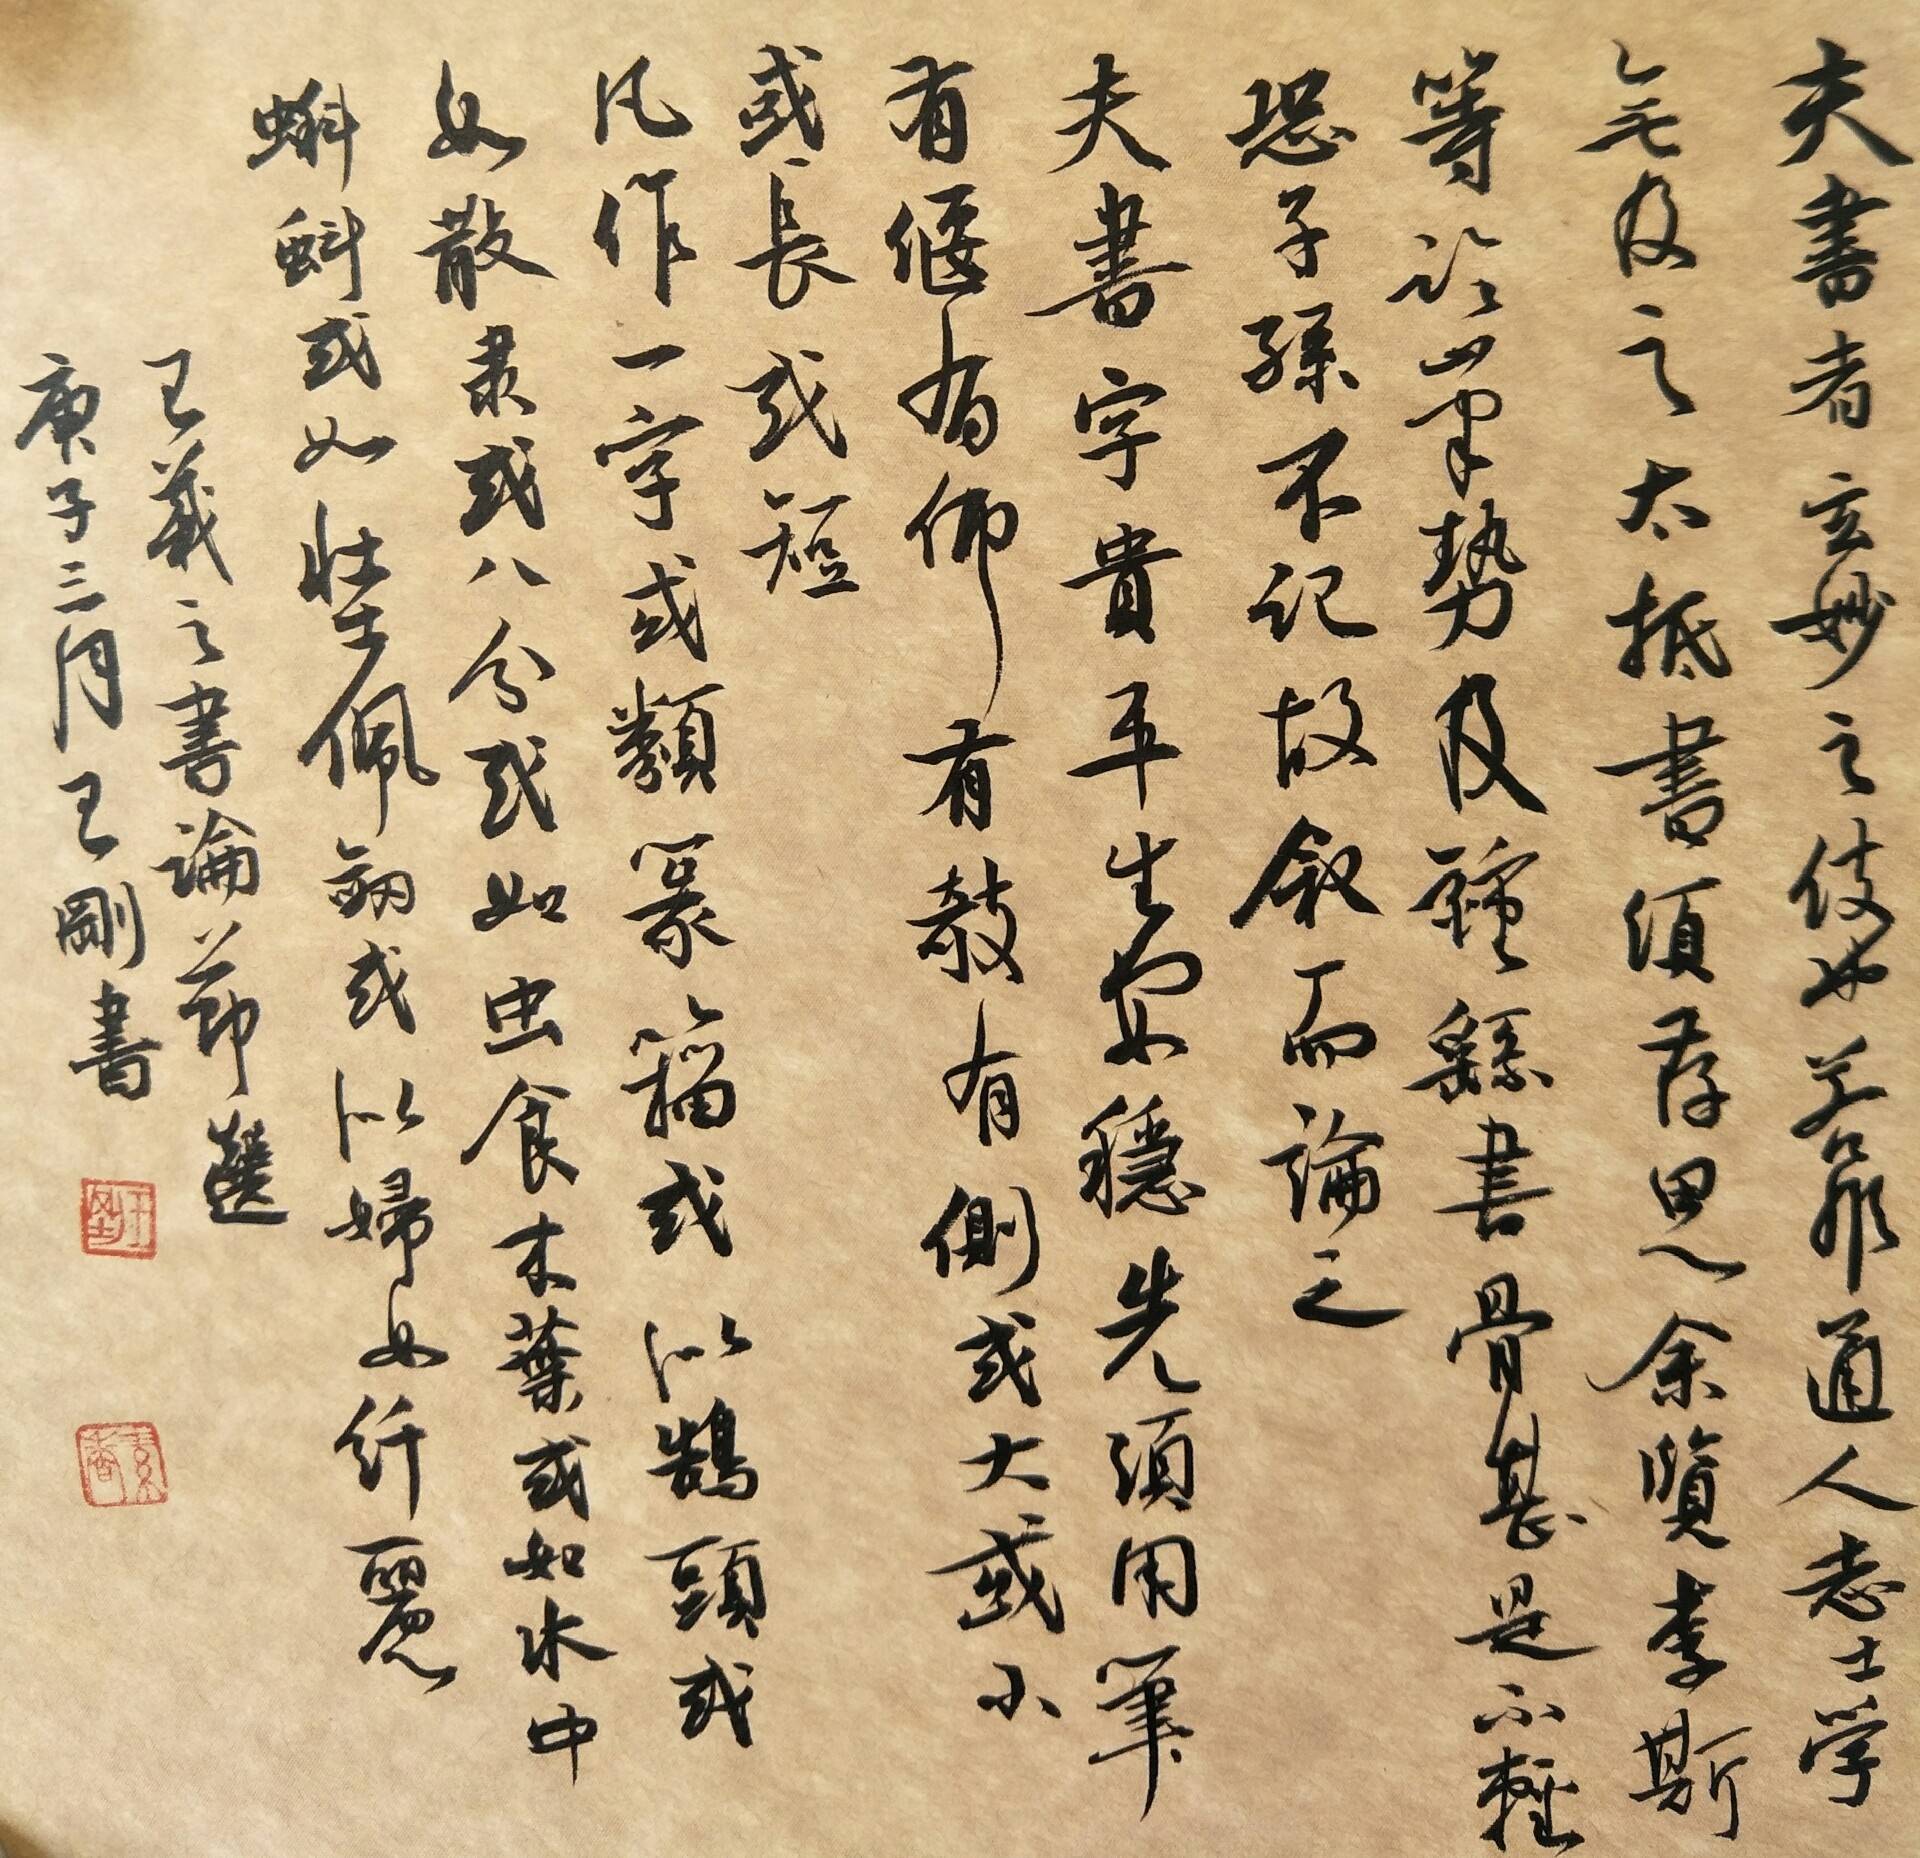 夫書者玄妙之伎也若非通人志士學
無及之大抵書須存思余覽李斯
等論筆勢及鍾繇書骨甚是不輕
恐子孫不記故叙而論之
夫書字貴平生安穩先須用筆
有偃有仰有欹有側或大或小
或長或短
凡作一字或類篆籀或似鵠頭或
如散隶或八分或如虫食木葉或如水中
蝌蚪或如壯佩劒或以婦女纤麗
王羲之書論節選
庚子三月王剛書